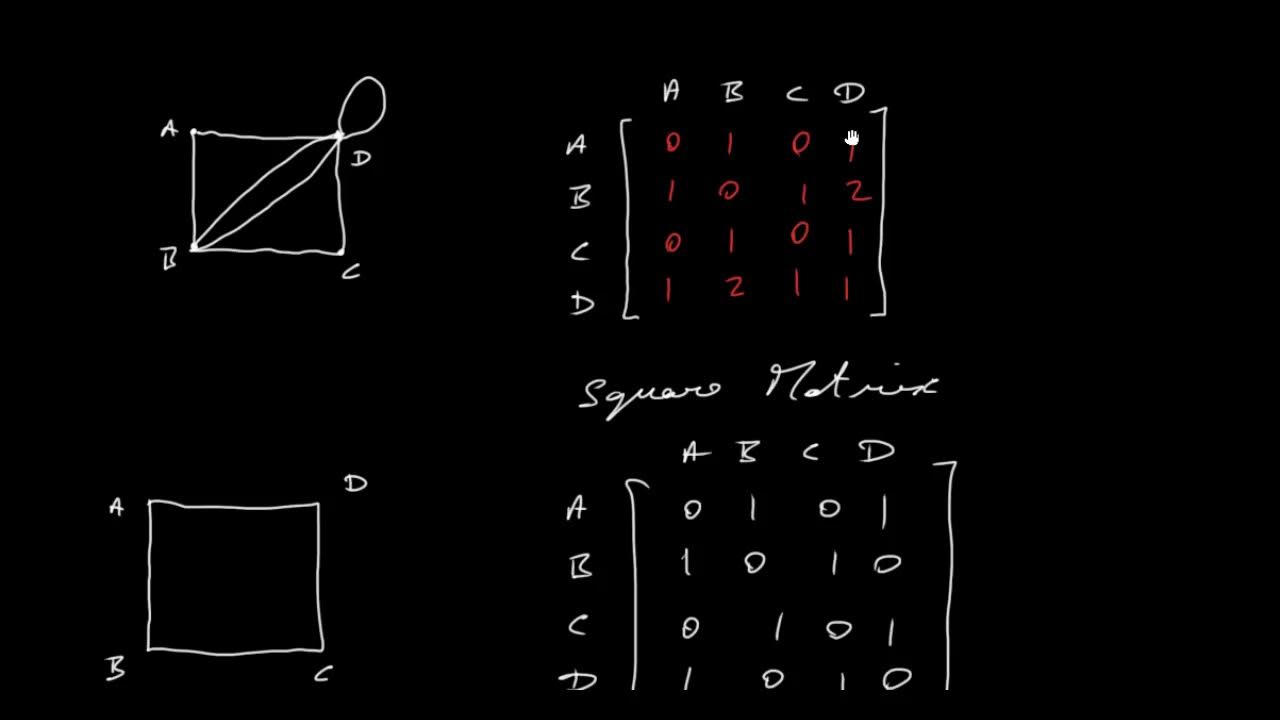 A B C D
A 0 1 0 1
B 1 0 1 2
C 0 1 0 1
D 1 2 1 1
A
D
B
C
Square Matrix
A B C D
A 0 1 0 1
B 1 0 1 0
C 0 1 0 1
D 1 0 1 0
D
A
B
C